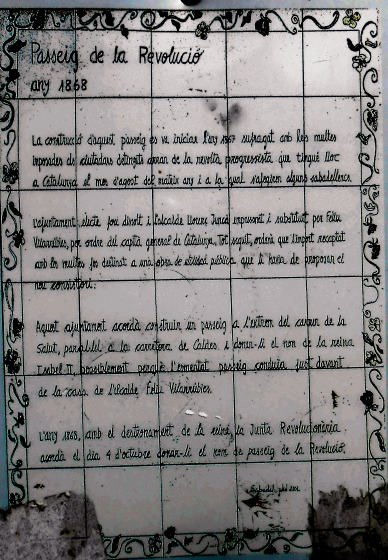 Passeig de la Revolució
any 1868
La construcció d'aquest passeig es va iniciar l'any 1867 sufragat amb les multes
imposades als ciutadans detinguts arran de la revolta progressista que tingué lloc
a Catalunya el mes d'agost del mateix any i a la qual s'afegiren alguns sabadellencs.
L'ajuntament electe fou dissolt i l'alcalde Llorenç empresonat i substituït per Feliu
Vilarrúbies, per ordre del capità general de Catalunya. Tot seguit, ordenà que l'import recaptat
amb les multes fos destinat a una obra de utilitat pública que li havia de proposar el
nou consistori.
Aquest ajuntament acordà construir un passeig a l'extrem del carrer de la
Salut, paral·lel a la carretera de Caldes, i donar-li el nom de la reina
Isabel II, possiblement perquè l'esmentat passeig conduïa just davant
de la casa de l'alcalde Feliu Vilarrúbies.
L'any 1868, amb el destronament de la reina, la Junta Revolucionària
acordà el dia 4 d'octubre donar-li el nom de passeig de la Revolució.
Sabadell,